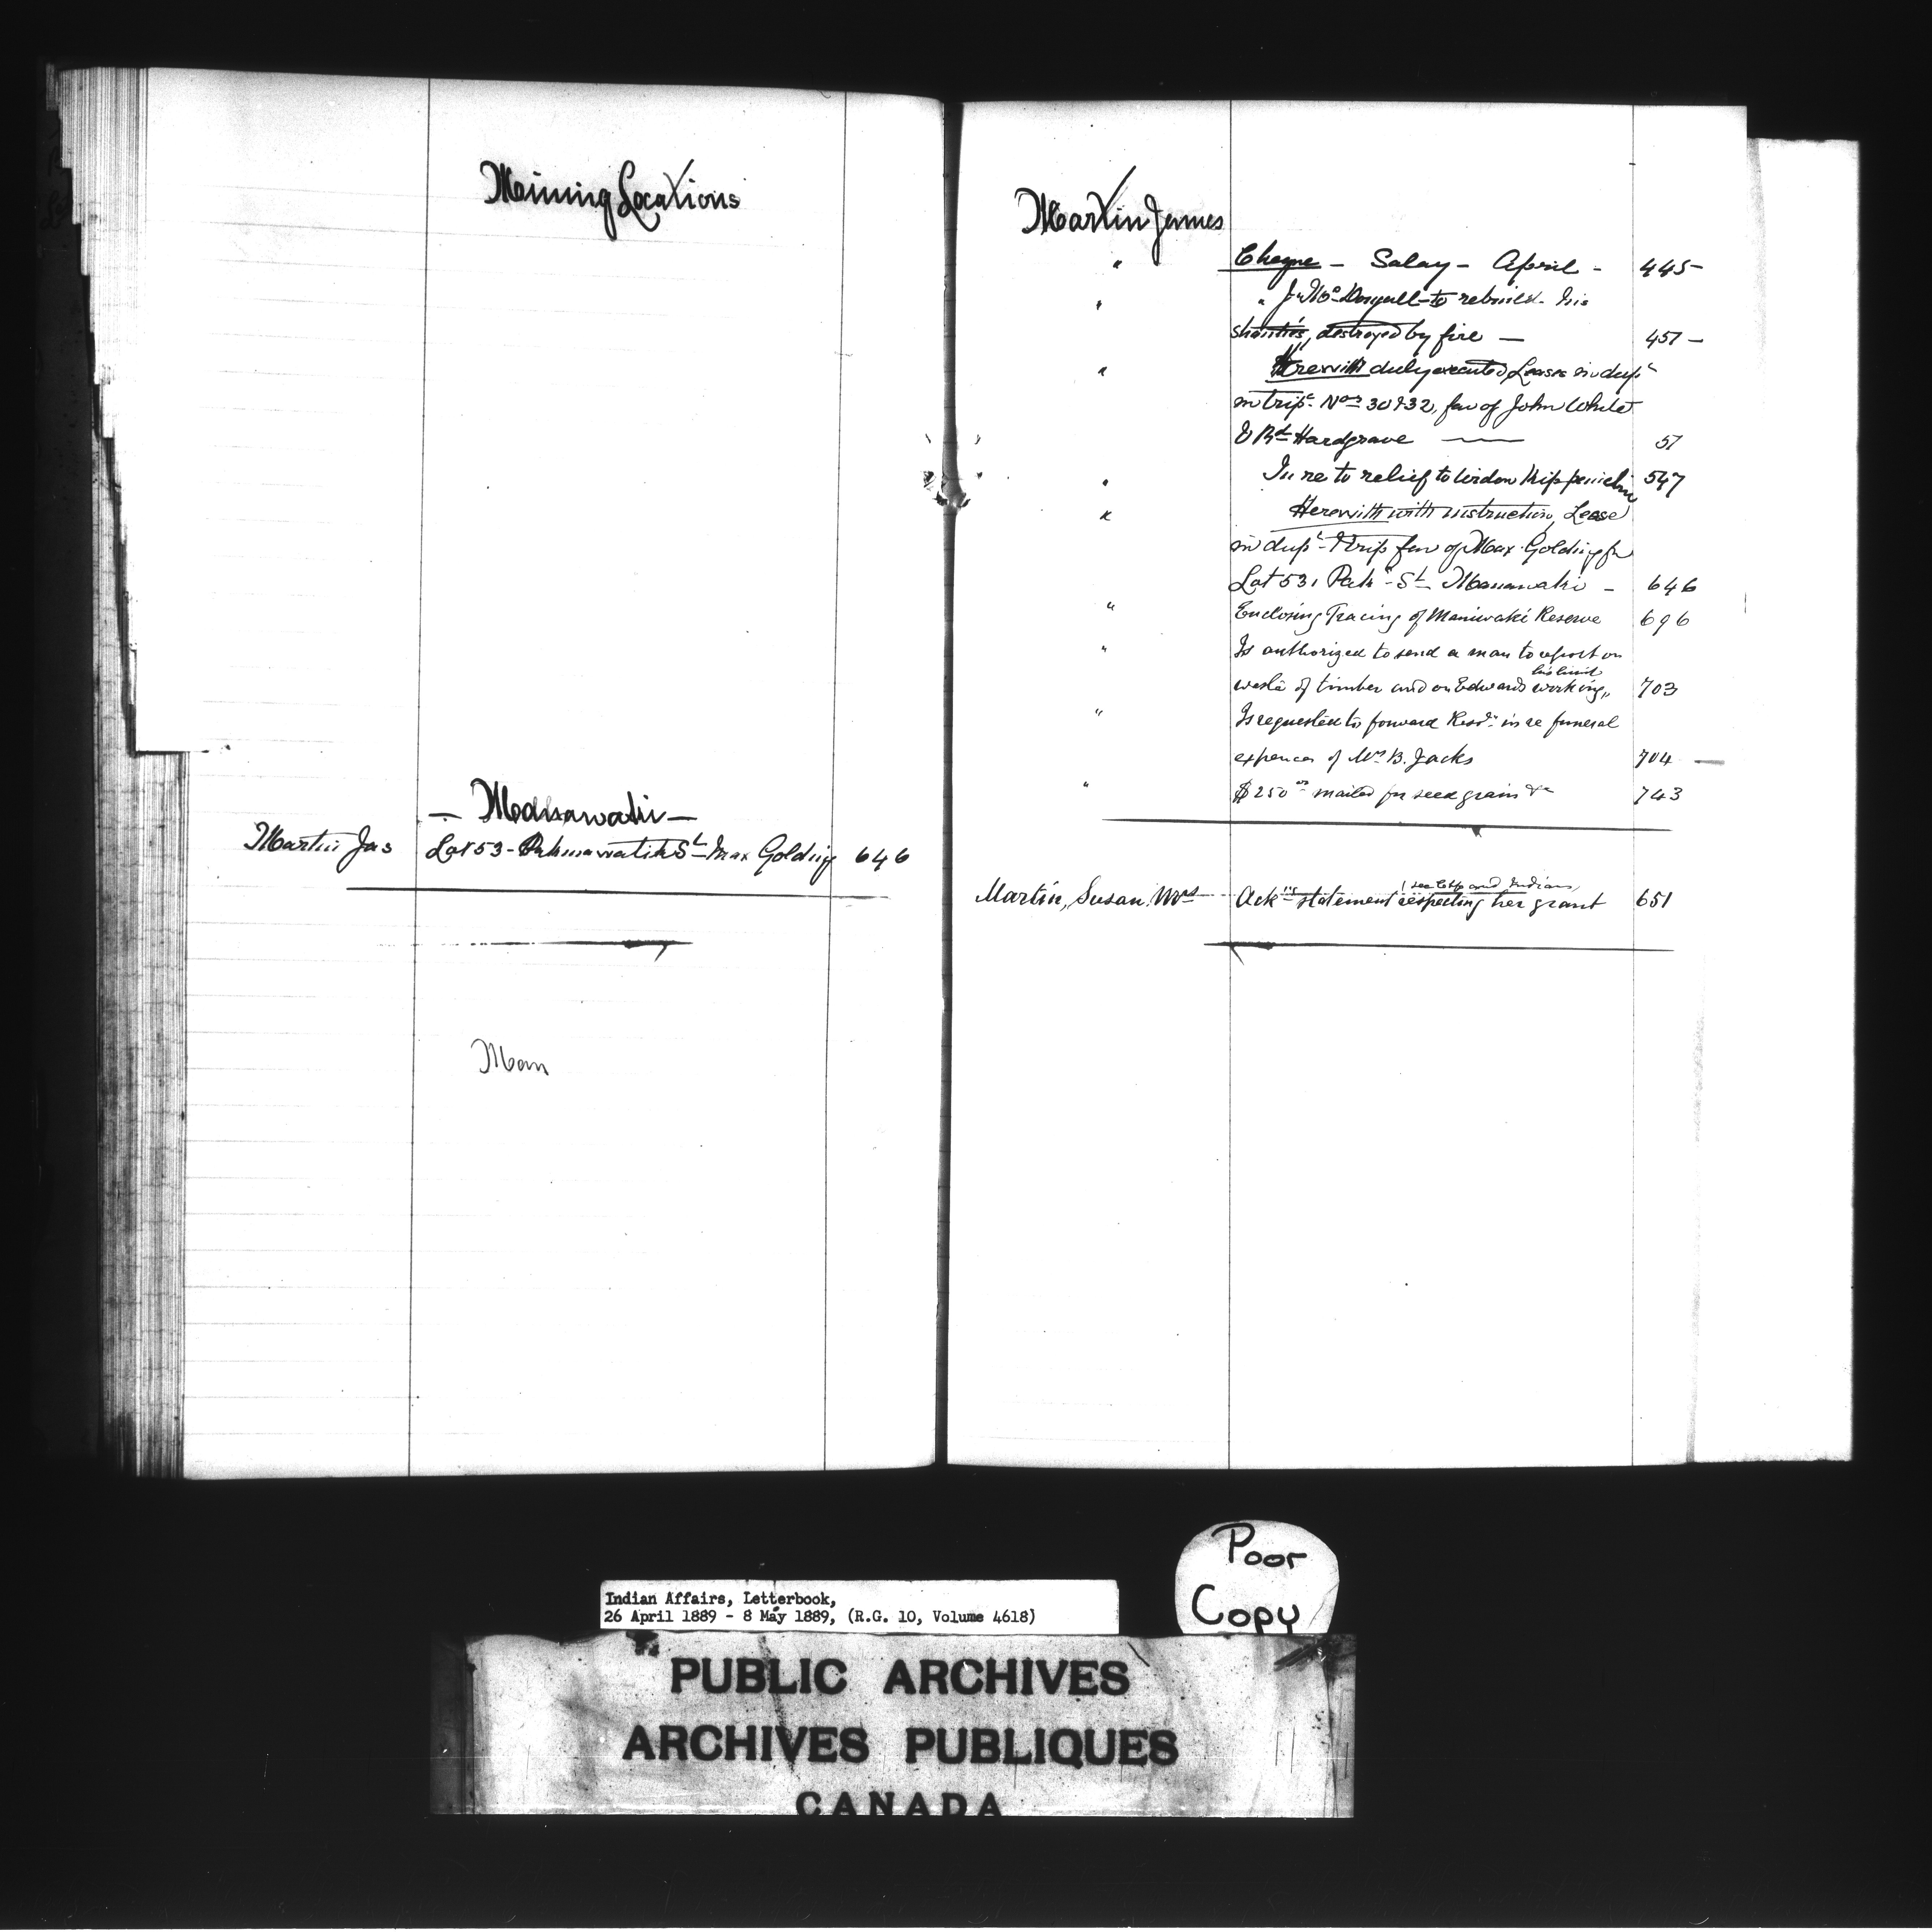 Mining Locations
— Maniwaki —
Martin Jas Lot 53 - Pakinawatik St Max Golding 646
Man
Martin James
" Cheque - Salary - April - 445 -
" " J. McDougall to rebuild his
shanties, destroyed by fire — 457 -
" Herewith duly executed Leases in dupe
in tripe Nos 30 & 32, fav of John White
& Rd Hardgrave — 51
" In re to relief to 547
" Herewith with instruction, Lease
in dupe & trip fav of Max Golding for
Lot 53, Pak" St Manawaki - 646
" Enclosing Tracing of Maniwaki Reserve 696
" Is authorized to send a man to report on
his limit
waste of timber and on Edwards working,, 703
" Is requested to forward Resn in re funeral
expences of Mrs B. Jacks 704 —
" $250 00 mailed for seed grain &c 743
(see and Indians)
Martin, Susan Mrs Ackng statement respecting her grant 651
Poor
Copy
Indian Affairs, Letterbook,
26 April 1889 - 8 May 1889, (R.G. 10, Volume 4618)
PUBLIC ARCHIVES
ARCHIVES PUBLIQUES
CANADA